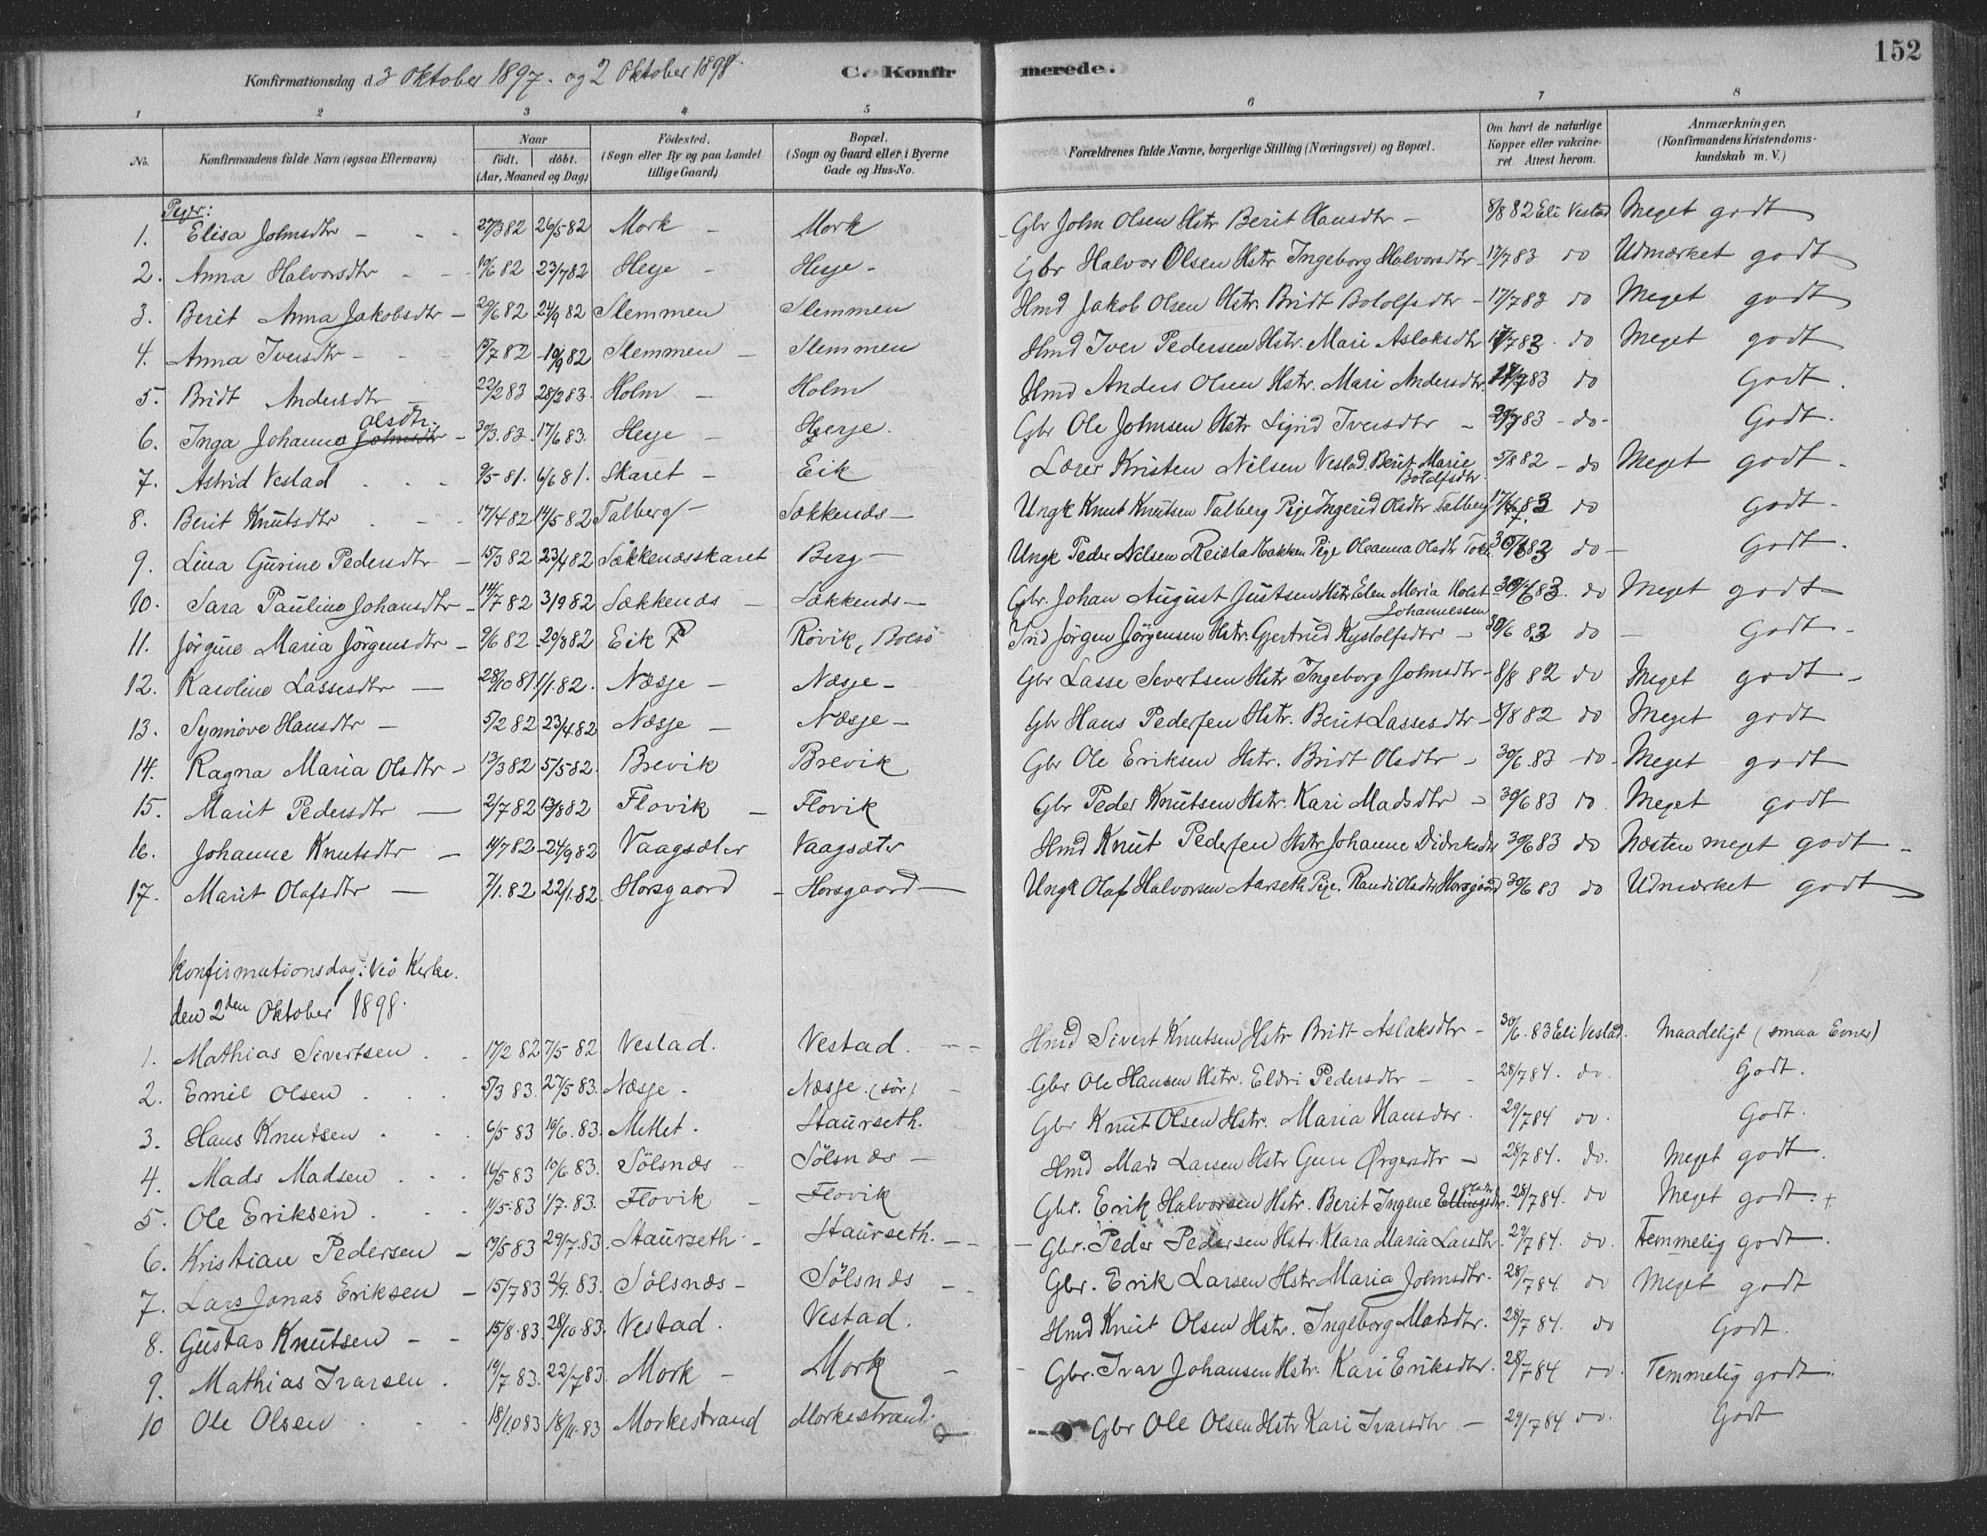 152
Konfirmationsdag d. 3 Oktober 1897. og 2 Oktober 1898
C. Konfirmerede.
1 2 3 4 5 6 7 8
No. Konfirmandens fulde Navn (ogsaa Efternavn) Naar født. døbt. (Aar, Maaned og Dag) Fødested. (Sogn eller By og paa Landet tillige Gaard) Bopæl. (Sogn og Gaard eller i Byerne Gade og Hus-No. Forældrenes fulde Navne, borgerlige Stilling (Næringsvei) og Bopæl. Om havt de naturlige Kopper eller vaccineret. Attest herom. Anmærkninger. (Konfirmandens Kristendomskundskab m. V.)
Piger:
1. Elisa Johnsdtr - 27/3 82 26/5 82 Mork - Mork Gbr John Olsen Hstr Berit Hansdtr - 8/8 82 Eli Vestad Meget godt
2. Anna Halvorsdtr - 10/6 82 23/7 82 Hesje - Hesje - Gbr Halvor Olsen Hstr Ingeborg Halvorsdtr - 17/7 83 do Udmærket godt
3. Berit Anna Jakobsdtr - 29/6 82 24/9 82 Slemmen Slemmen Hmd Jakob Olsen Hstr. Bridt Bololfsdtr - 17/7 83 do Meget godt
4. Anna Iversdtr - 15/7 82 10/9 82 Slemmen - Slemmen Hmd Iver Pedersen Hstr. Mari Aslaksdtr 17/7 83 do Meget godt
5. Bridt Andersdtr - 22/2 83 28/2 83. Holm - Holm Hmd Anders Olsen Hstr. Mari Andersdtr. 17/7 83 do Godt.
6. Inga Johanna Johnsdtr Olsdtr. - 30/3 83 17/6 83. Hesje - Hesje. Gbr Ole Johnsen Hstr Sigrid Iversdtr - 83 - do - Godt.
7. Astrid Vestad 9/5 81. 6/6 81. Skaret - Eik Lærer Kristen Nilsen Vestad. Berit Marie Bololfsdtr. 5/8 82 - do Meget godt.
8. Berit Knutsdtr 17/4 82 14/5 82 Talberg - Sækkenæs - Ungk Knut Knutsen Talberg Pige Ingerid Olsdtr Talberg 83 do Godt.
9. Lina Gurine Pedersdtr - 15/3 82 23/4 82 Sækkenæsskaret Berg - Ungk Peder Nilsen Reistabakken Pige Oleanna Olsdtr 30/6 83 do - Godt.
10. Sara Pauline Johansdtr - 14/7 82 3/9 82 Sækkenæs - Sækkenæs - Gbr. Johan August Justsen Hstr Elen Maria Holst Johannessen 30/6 83. do Meget godt
11. Jörgine Maria Jörgensdtr - 9/6 82 20/8 82 Eik Rövik, Bolsö Ind Jörgen Jörgensen Hstr. Gjertrud Kystolfsdtr - 30/6 83 do - Godt -
12. Karoline Lassesdtr - 28/10 81 1/1.82. Næsje - Næsje - Gbr Lasse Sivertsen Hstr Ingeborg Johnsdtr - 8/8 82 do Meget godt -
13. Synnöve Hansdtr - 5/2 82 23/4 82 Næsje - Næsje - Gbr Hans Pedersen Hstr. Berit Lassesdtr - 8/8 82 do Meget godt
14. Ragna Maria Olsdtr - 13/3 82 5/5 82. Brevik Brevik Gbr Ole Eriksen Hstr. Bridt Olsdtr - 30/6. 83 do - Meget godt
15. Marit Pedersdtr - 2/7 82 13/8 82 Flovik - Flovik Gbr Peder Knutsen Hstr. Kari Madsdtr - 30/6 83 do Meget godt
16. Johanne Knutsdtr - 14/7 82 24/9 82 Vaagsæter Vaagsæter Hmd Knut Pedersen Hstr Johanne Didriksdtr 30/6 83 do Næsten meget godt -
17. Marit Olafsdtr - 7/1.82 22/1.82 Horsgaard - Horsgaard - Ungk Olaf Halvorsen Aarseth Pige. Randi Olsdtr Horsgaard 30/6 83 do Udmærket godt
Konfirmationsdag: Veö Kirke.
den 2den Oktober 1898.
1. Mathias Sivertsen 17/2 82 7/5 82 Vestad. Vestad. - - Hmd Sivert Knutsen Hstr Bridt Aslaksdtr - 30/6. 83 Eli Vestad. Maadeligt (smaa Evner)
2. Emil Olsen 5/3 83. 27/5 83. Næsje. Næsje (sör). Gbr Ole Hansen Hstr. Eldri Pedersdtr - 28/7 84. do. Godt.
3. Hans Knutsen 6/5 83 10/6. 83. Mettet. Staurseth. Gbr Knut Olsen Hstr. Maria Hansdtr. 29/7 84 do. Godt.
4. Mads Madsen 10/5 83 10/6 83. Sölsnæs - Sölsnæs - Hmd Mads Larsen Hstr Guri Ørgersdtr - 28/7 84. do. Meget godt.
5. Ole Eriksen 11/5.83 1/7.83. Flovik - Flovik Gbr. Erik Halvorsen Hstr. Berit Ingene Ellingsdtr. 28/7 84. do Meget godt. +
6. Kristian Pedersen - 19/5 83 29/7.83. Staurseth. Staurseth. - - Gbr. Peder Pedersen Hstr. Klara Maria Larsdtr. 29/7 84. do. Temmelig godt.
7. Lars Jonas Eriksen - 15/7 83 2/9. 83. Sölsnæs - Sölsnæs - Gbr. Erik Larsen Hstr Maria Johnsdtr. 28/7 84 do Meget godt
8. Gustav Knutsen - - 15/8.83. 28/10.83. Vestad. Vestad. Hmd Knut Olsen Hstr. Ingeborg Madsdtr. 28/7 84. do Godt.
9. Mathias Ivarsen. 10/7.83. 22/7 83. Mork - Mork - Gbr. Ivar Johansen Hstr. Kari Eriksdtr. 28/7 84 do. Temmelig godt.
10 Ole Olsen 18/10 83 18/11.83 Morkestrand Morkestrand. Gbr Ole Olsen Hstr Kari Ivarsdtr - 29/7 84 do. Godt